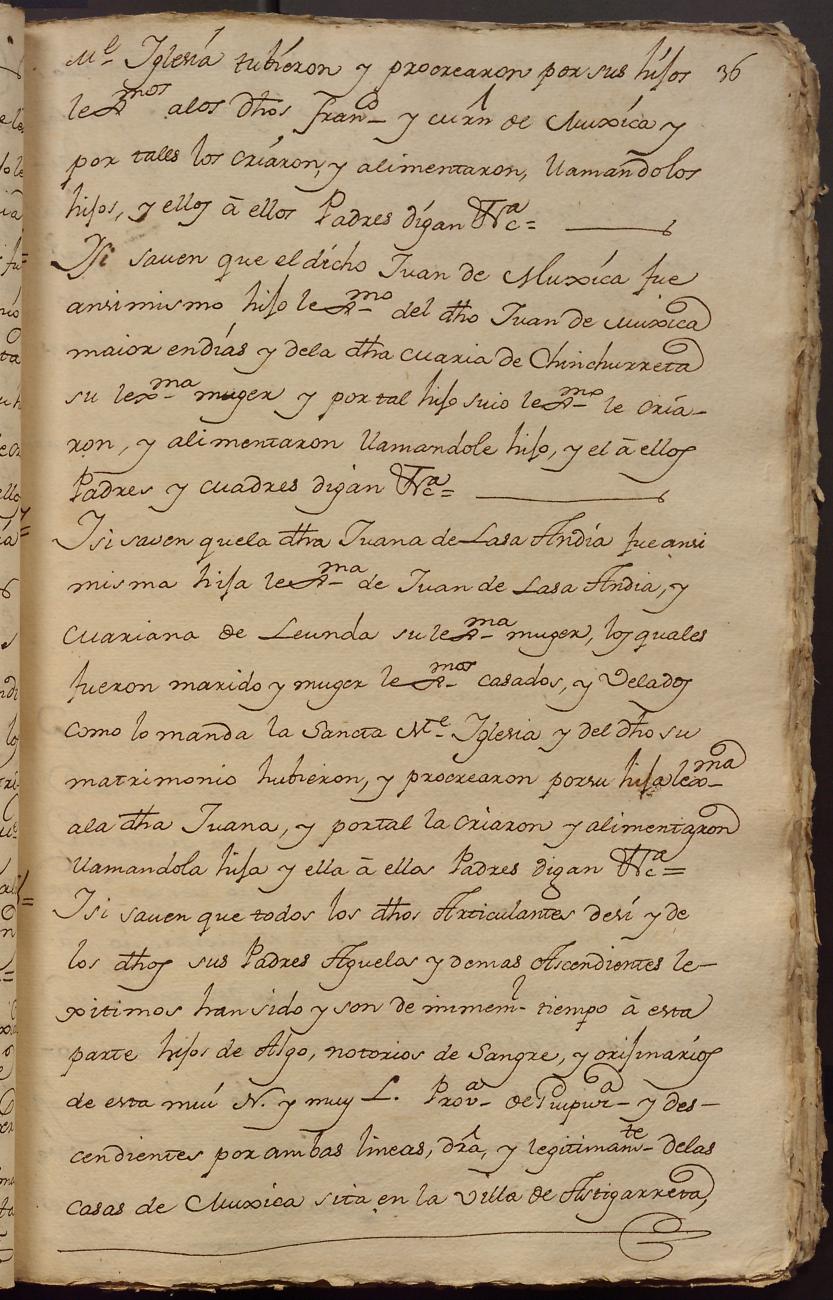 Me Iglesía tubieron y procrearon por sus hijos 36
lexmos alos dhos Franco y Mrn de Muxíca y
por tales los criáron, y alimentaron, llamandolos
hijos, y ellos â ellos Padres dígan &ca=
Ysi saven que el dícho Juan de Muxíca fue
ansimismo hijo lexmo del dho Juan de Muxica
maior en días y dela dha Maria de Chinchurreta
su lexma muger y por tal hijo suio lexmo le cría-
ron, y alimentaron llamandole hijo, y el â ellos
Padres y Madres digan &ca=
Ysi saven quela dha Juana de Lasa Andía fue ansi
misma hija lexma de Juan de Lasa Andia, y
Mariana de Leunda su lexma muger, los quales
fueron marido y muger lexmos casados, y Velados
como lo manda la Sancta Me Iglesia y del dho su
matrimonio hubieron, y procrearon porsu hija lexma
ala dha Juana, y portal la criaron y alimentaron
llamandola hija y ella â ellos Padres digan &ca=
Ysi saven que todos los dhos Articulantes desí y de
los dhos sus Padres Aguelos y demas Ascendientes le-
xitimos han sido y son de immeml tiempo â esta
parte hijos de Algo, notorios de Sangre, y orijinaríos
de esta muí N. y muy L. Prova de Guipuza y des-
cendientes por ambas lineas, dra, y legitimante delas
casas de Muxica sita en la Villa de Astigarreta,